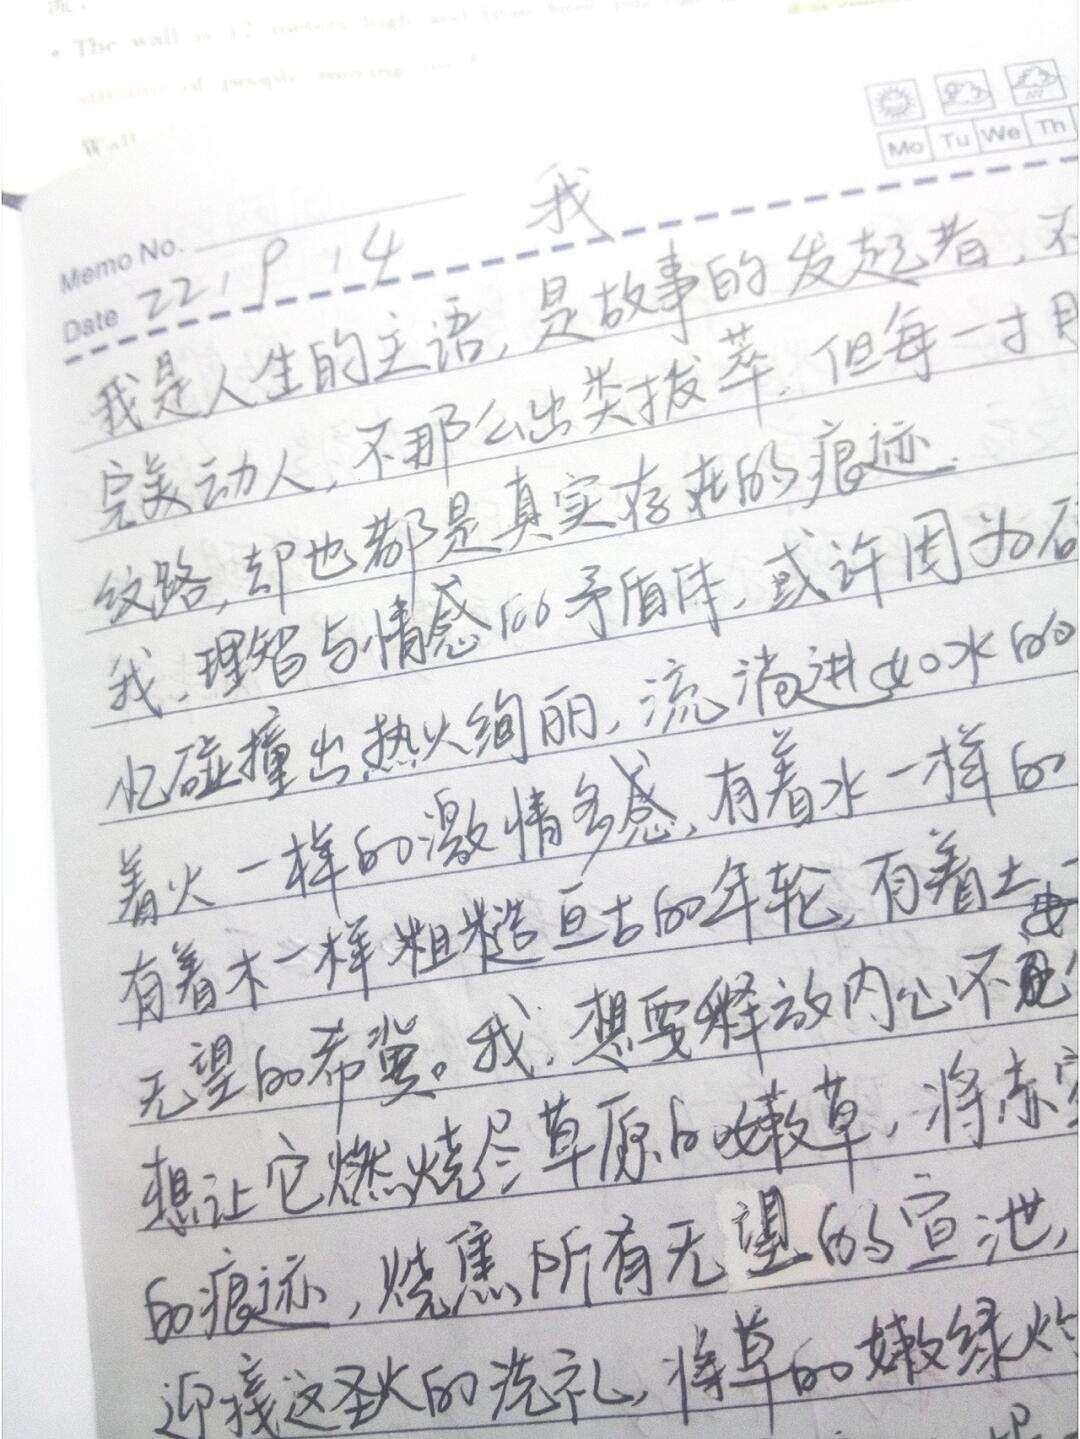 The wall is 12 meters high and from
of people moving
Wall
Mo Tu We Th
Memo No.
我
Date 22.9.14
我是人生的主语,是故事的发起者,不
完美动人,不那么出类拔萃.但每一寸
纹路,却也都是真实存在的痕迹.
我.理智与情感的矛盾体,或许因为
忆碰撞出热火绚丽,流淌进如水的
着火一样的激情多感,有着水一样的
有着木一样粗糙亘古的年轮,有着土
无望的希冀。我.想要释放内心不
想让它燃烧尽草原的嫩草,将赤
的痕迹,烧焦所有无望的宣泄,
迎接这圣火的洗礼,将草的嫩绿灼